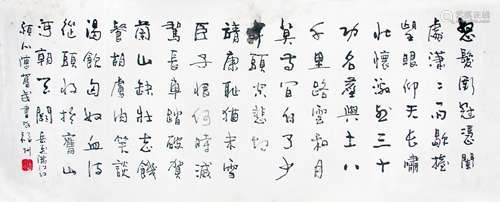 怒髮衝冠憑闌
處瀟〻雨歇擡
望眼仰天長嘯
壯懷激烈三十
功名塵與土八
千里路雲和月
莫等閒白了少
年頭空悲切
靖康恥猶未雪
臣子恨何時滅
駕長車踏破賀
蘭山缺壯志饑
餐胡虜肉笑談
渴飲匈奴血待
從頭收拾舊山
河朝天闕 岳飛滿江紅